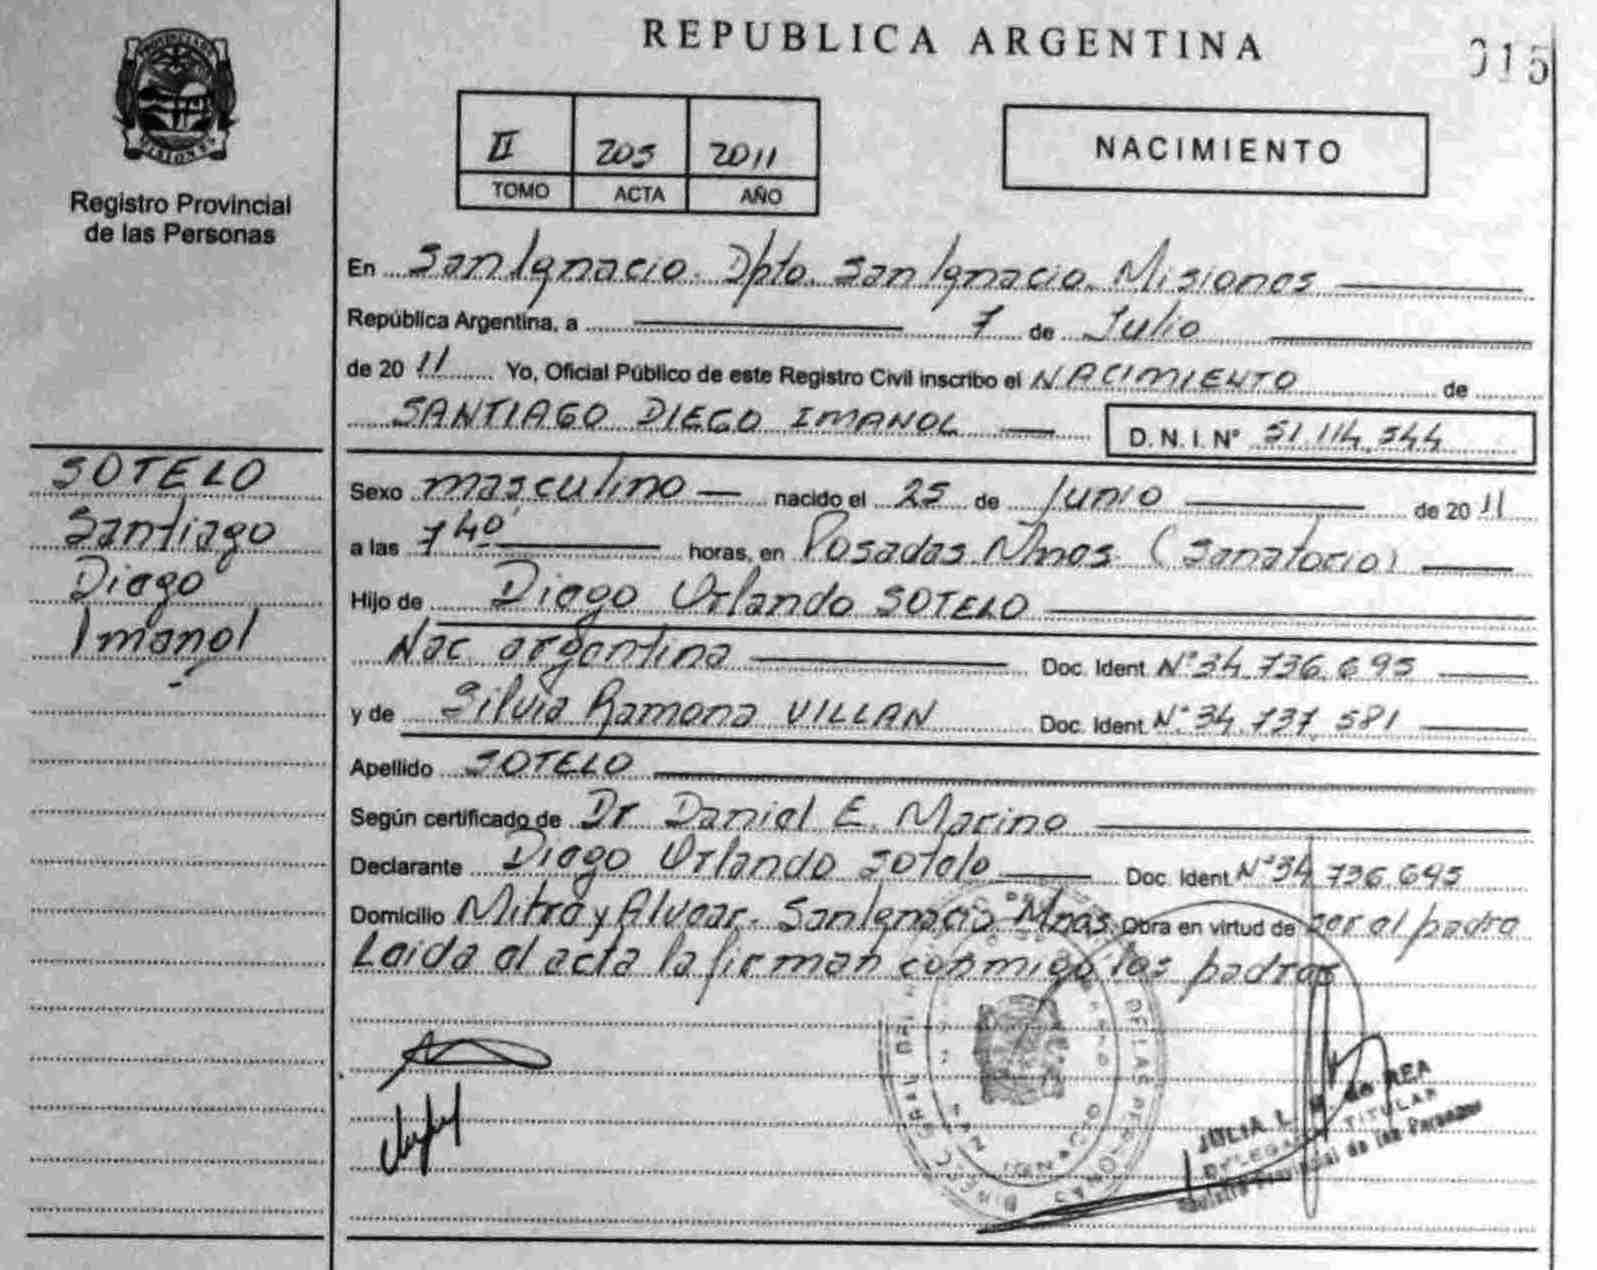 REPUBLICA ARGENTINA
015
PROVINCIA DE
MISIONES
Registro Provincial
de las Personas
II 205 2011
TOMO ACTA AÑO
NACIMIENTO
En San Ignacio. Dpto. San Ignacio. Misiones
República Argentina, a 7 de Julio
de 2011 Yo, Oficial Público de este Registro Civil inscribo el NACIMIENTO de
SANTIAGO DIEGO IMANOL D.N.I. N° 51.114.544
SOTELO
Santiago
Diego
Imanol
Sexo masculino nacido el 25 de Junio de 2011
a las 7 40' horas, en Posadas Mnes (Sanatorio)
Hijo de Diego Orlando SOTELO
Nac argentina Doc. Ident. N° 34.736.695
y de Silvia Ramona VILLAN Doc. Ident. N° 34.737.581
Apellido SOTELO
Según certificado de Dr Daniel E. Marino
Declarante Diego Orlando Sotelo Doc. Ident. N° 34.736.695
Domicilio Mitre y Alvear. San Ignacio Mnes. Obra en virtud de ser el padre
Leida el acta la firman conmigo los padres
DE LAS PERSONAS
JULIA L. de REA
DELEGADA TITULAR
Registro Provincial de las Personas